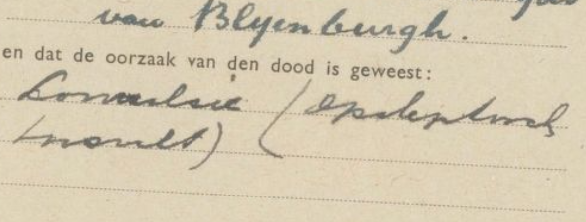 van Blyenburgh.
en dat de oorzaak van den dood is geweest:
Convulsie (epileptisch
insult)